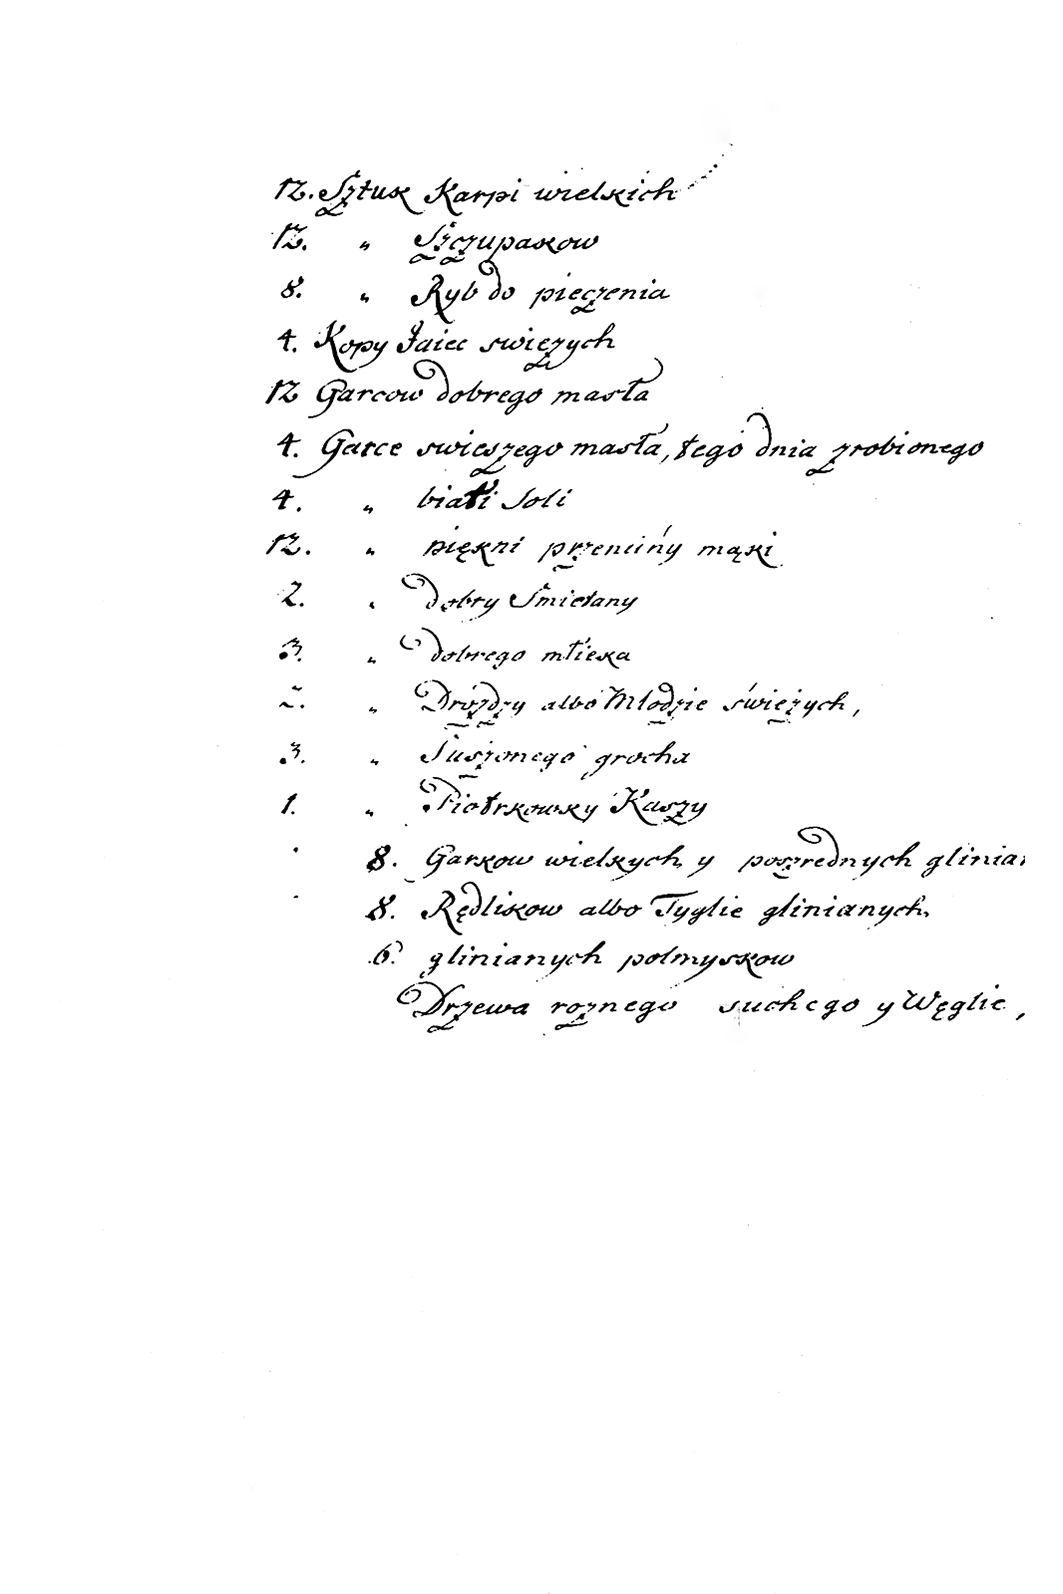 12. Sztuk Karpi wielkich
12. " Szczupakow
8. " Ryb do pieczenia
4. Kopy Jaiec swiezych
12 Garcow dobrego masła
4. Garce swieszego masła, tego dnia zrobionego
4. " białi Soli
12. " piękni przeniińy mąki
2. " dobry Smietany
3. " dobrego młieka
2. " Drożdzy albo Młodzie świeżych,
3. " Suszonego grocha
1. " Piotrkowsky Kaszy
8. Garkow wielkych y poszrednych glinian
8. Rędlikow albo Tyglie glinianych
6. glinianych polmyskow
Drzewa roznego suchego y Węglie,